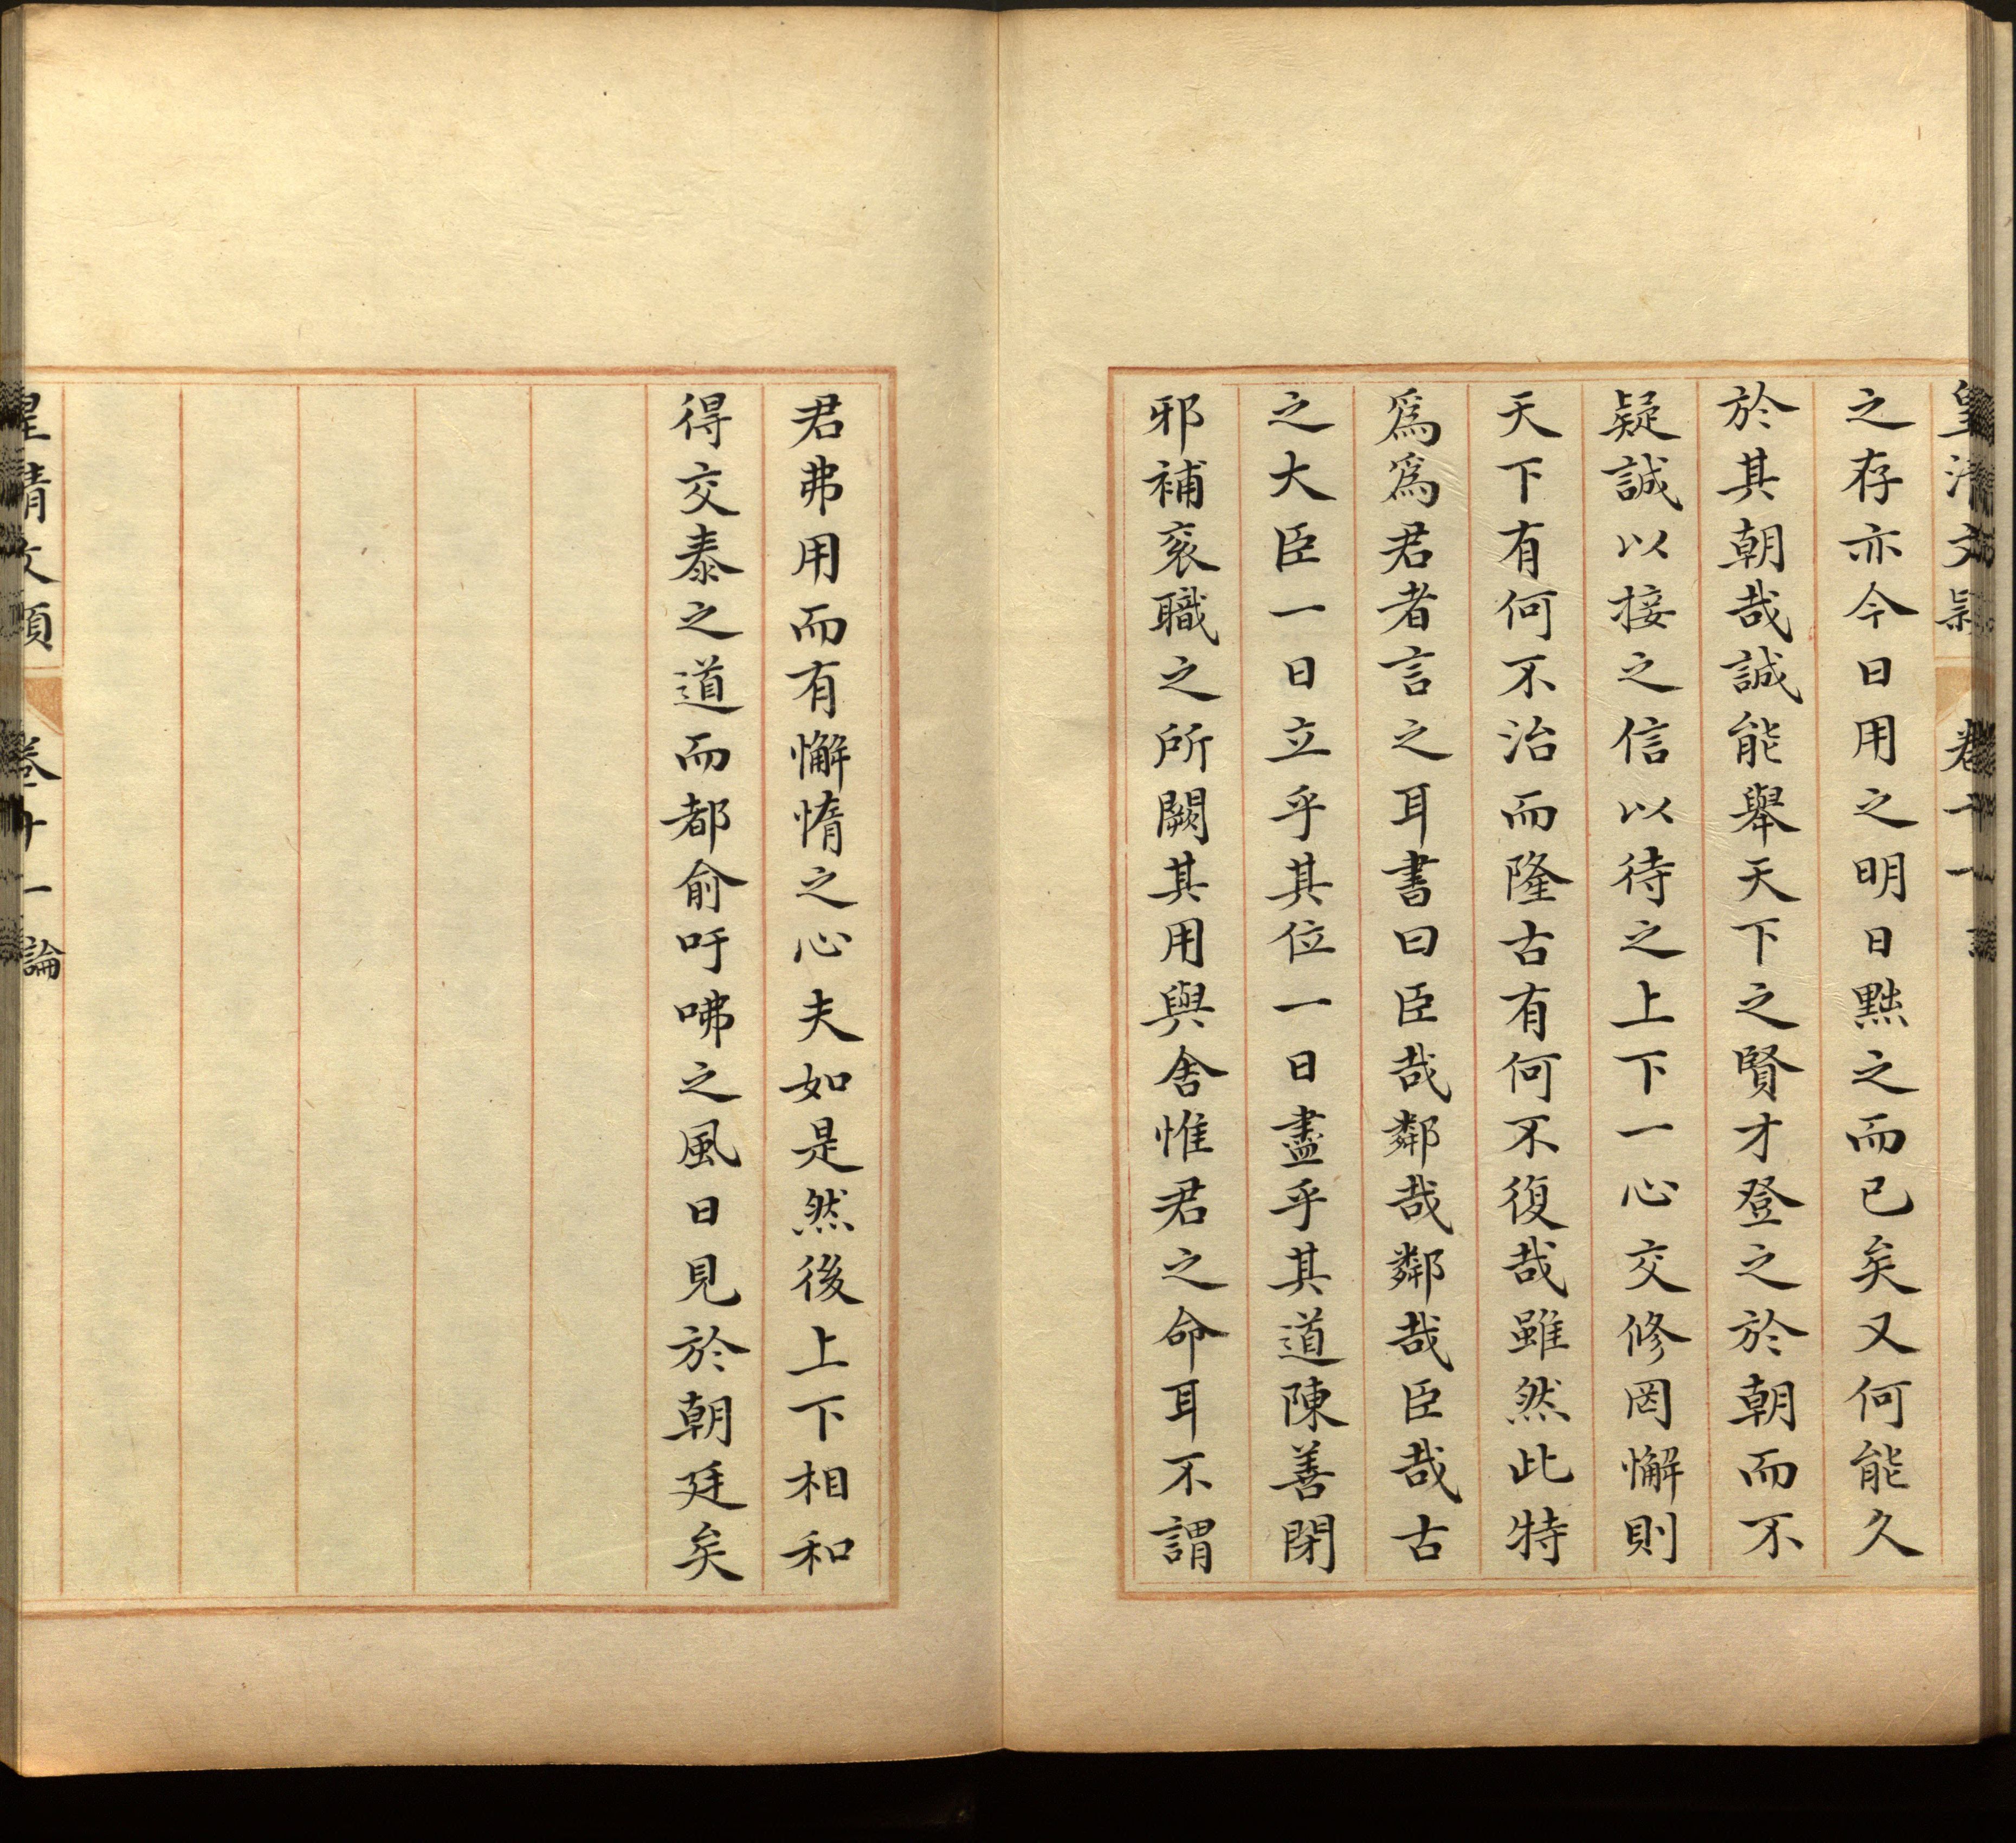 皇清文穎 卷十一 論
之存亦今日用之明日黜之而已矣又何能久
於其朝哉誠能舉天下之賢才登之於朝而不
疑誠以接之信以待之上下一心交修罔懈則
天下有何不治而隆古有何不復哉雖然此特
爲爲君者言之耳書曰臣哉鄰哉鄰哉臣哉古
之大臣一日立乎其位一日盡乎其道陳善閉
邪補衮職之所闕其用與舍惟君之命耳不謂
君弗用而有懈惰之心夫如是然後上下相和
得交泰之道而都俞吁咈之風日見於朝廷矣
皇清文穎 卷十一 論